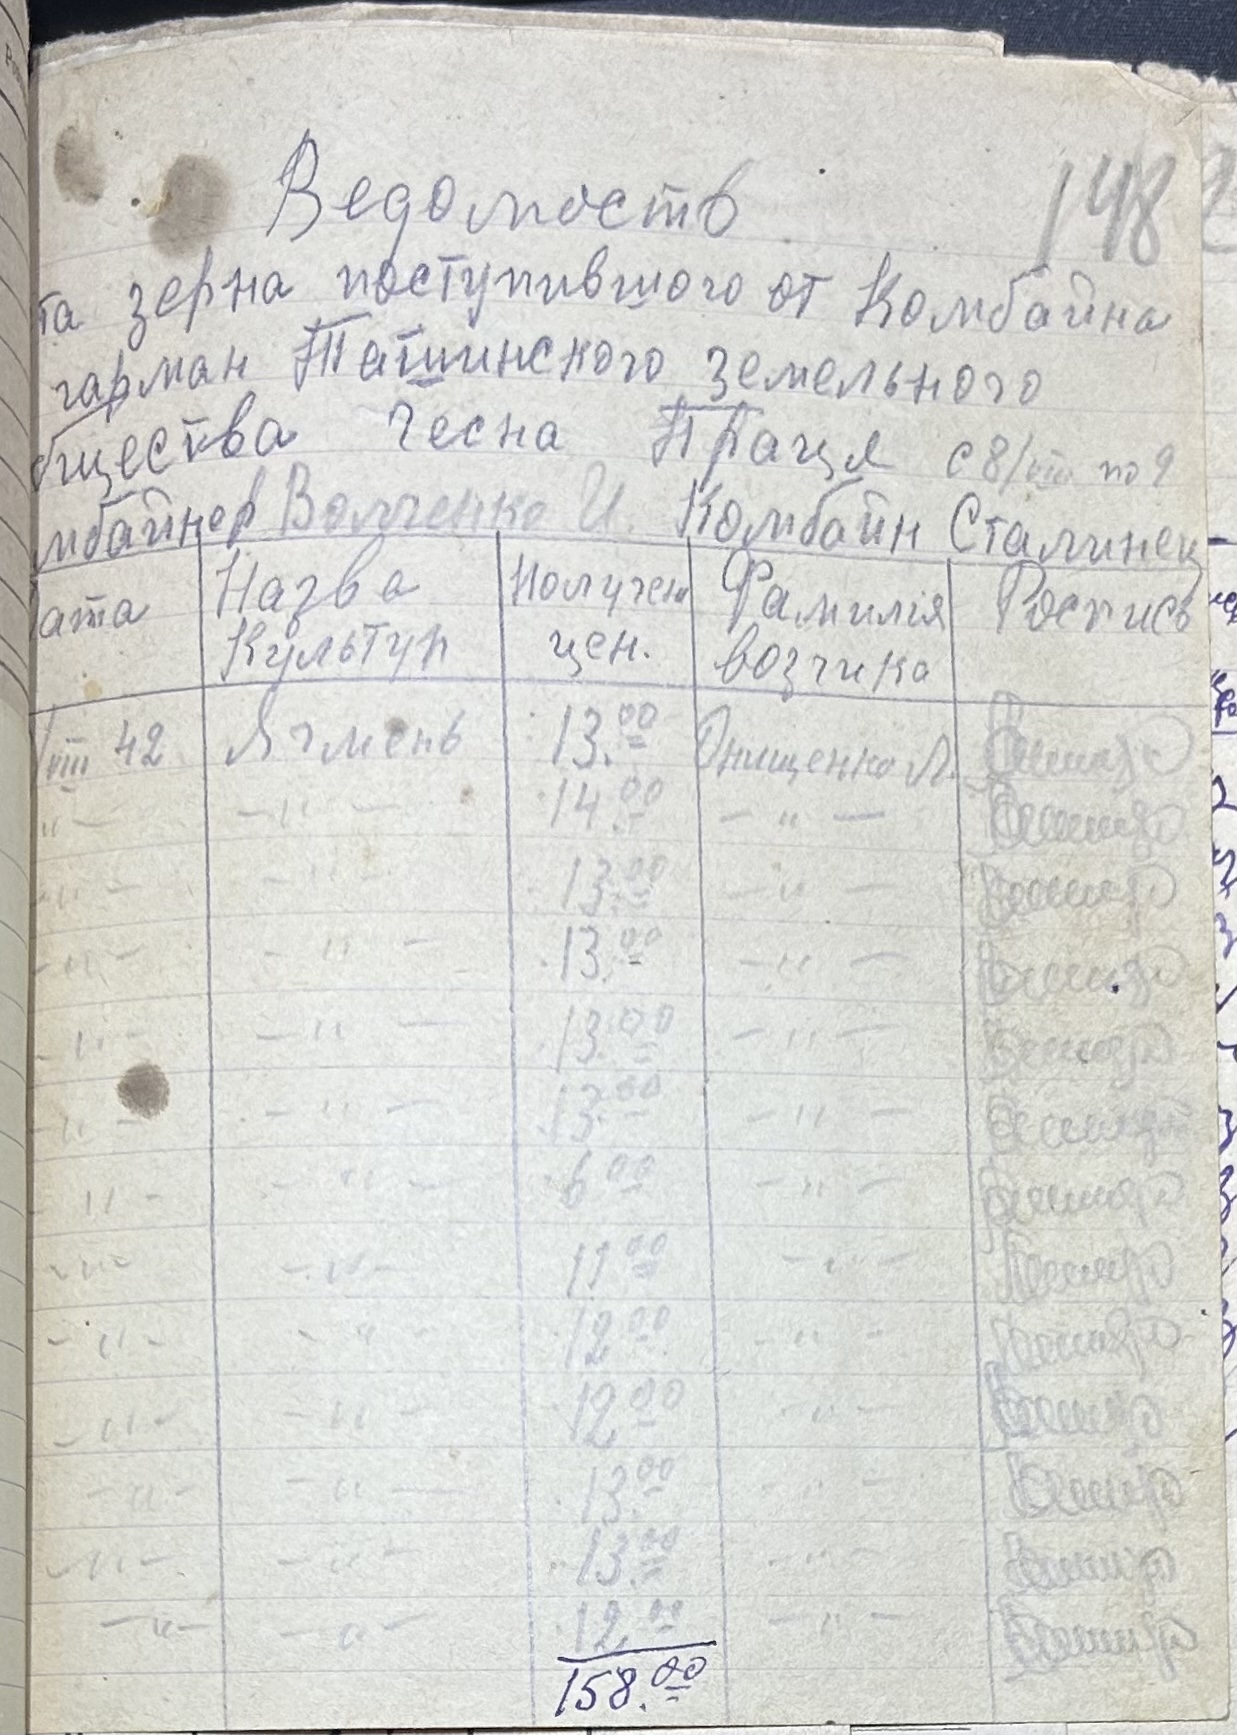 Ведомость
148
та зерна поступившого от Комбайна
гарман Ташинского земельного
бщества Чесна Праця с 8/VIII по 9
мбайнер Волченко И. Комбайн Сталинец
ата Назва Культур Получен цен. Фамилія возчика Роспись
/VIII 42 Ячмень 13.00 Онищенко Л.
" - - " - 14.00 - " -
- " - - " - 13.00 - " -
- " - - " - 13.00 - " -
- " - - " - 13.00 - " -
- " - - " - 13.00 - " -
" - - " - 6.00 - " -
- " - - " - 11.00 - " -
- " - - " - 12.00 - " -
- " - - " - 12.00 - " -
- " - - " - 13.00 - " -
- " - - " - 13.00 - " -
- " - - " - 12.00 - " -
158.00